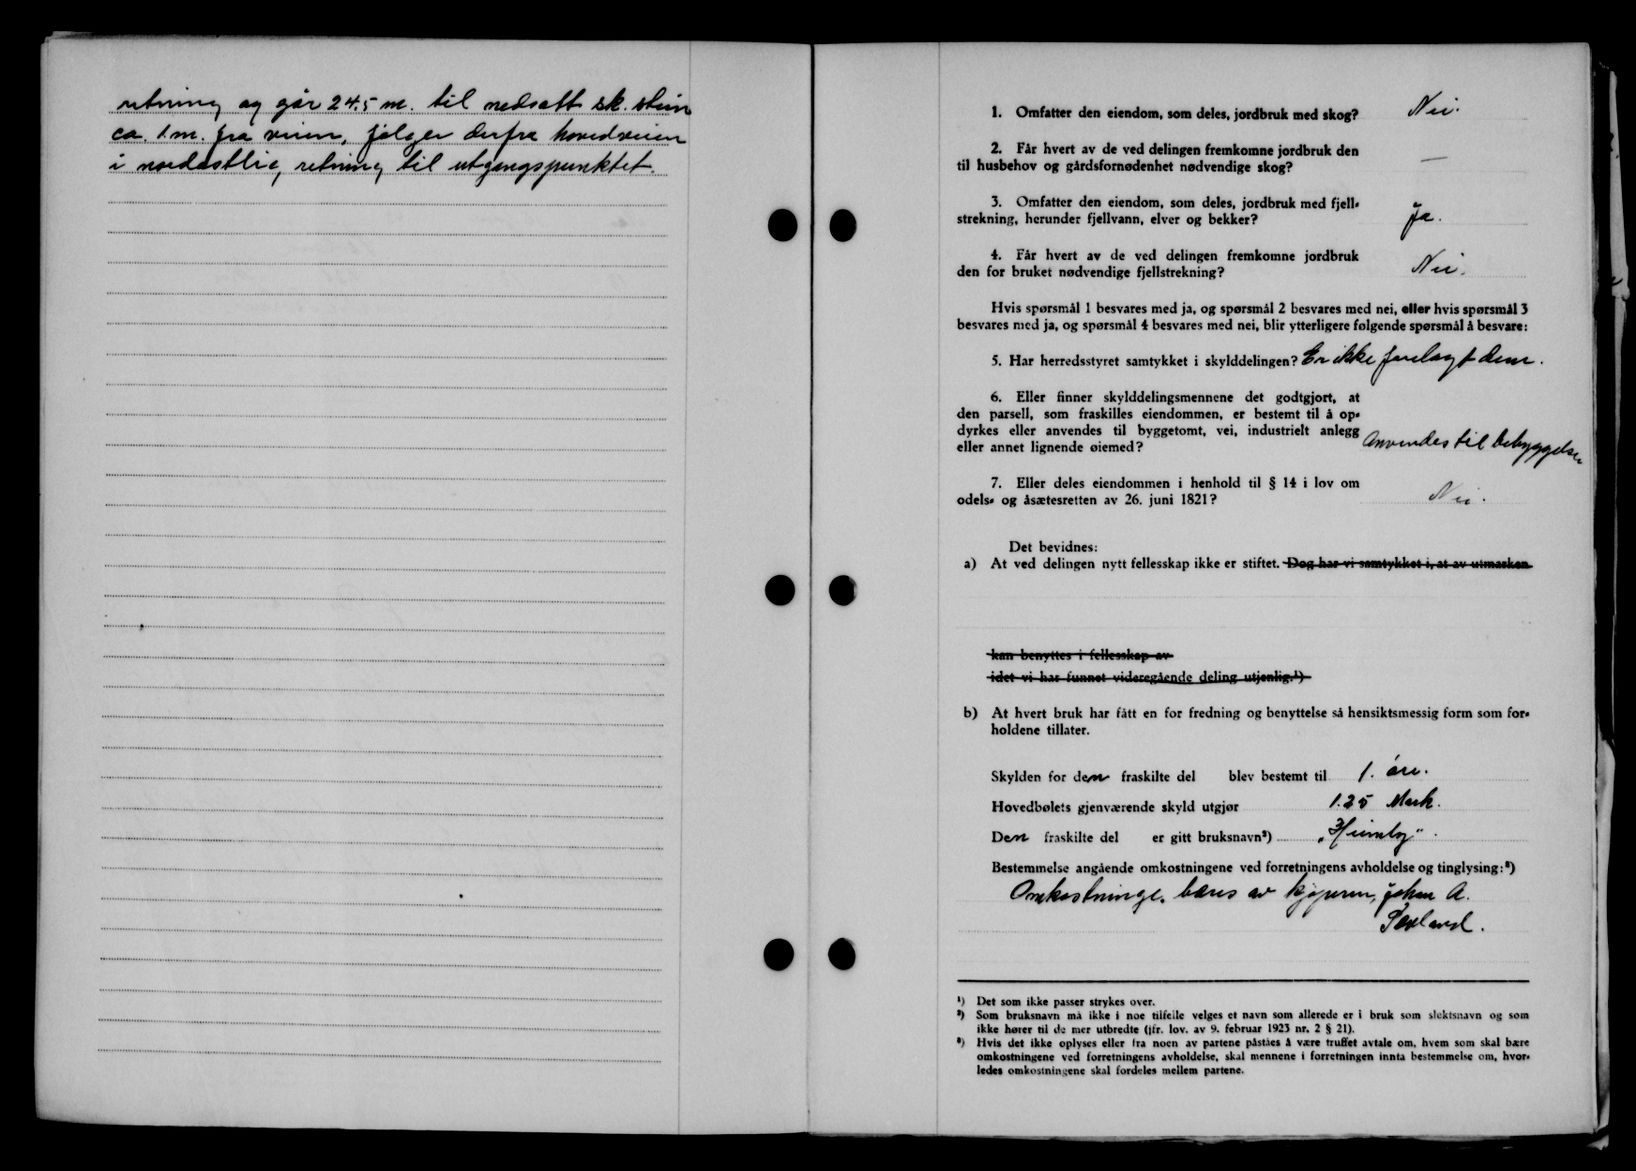 retning og går 24.5 m. til nedsatt sk. stein
ca. 1 m. fra veien, følger derfra hovedveien
i nordøstlig retning til utgangspunktet.
1. Omfatter den eiendom, som deles, jordbruk med skog? Nei.
2. Får hvert av de ved delingen fremkomne jordbruk den
til husbehov og gårdsfornødenhet nødvendige skog? —
3. Omfatter den eiendom, som deles, jordbruk med fjell-
strekning, herunder fjellvann, elver og bekker? Ja.
4. Får hvert av de ved delingen fremkomne jordbruk
den for bruket nødvendige fjellstrekning? Nei.
Hvis spørsmål 1 besvares med ja, og spørsmål 2 besvares med nei, eller hvis spørsmål 3
besvares med ja, og spørsmål 4 besvares med nei, blir ytterligere følgende spørsmål å besvare:
5. Har herredsstyret samtykket i skylddelingen? Er ikke forelagt dem.
6. Eller finner skylddelingsmennene det godtgjort, at
den parsell, som fraskilles eiendommen, er bestemt til å op-
dyrkes eller anvendes til byggetomt, vei, industrielt anlegg
eller annet lignende øiemed? Anvendes til bebyggelse
7. Eller deles eiendommen i henhold til § 14 i lov om
odels- og åsætesretten av 26. juni 1821? Nei.
Det bevidnes:
a) At ved delingen nytt fellesskap ikke er stiftet. Dog har vi samtykket i, at av utmarken
kan benyttes i fellesskap av
idet vi har funnet videregående deling utjenlig.¹)
b) At hvert bruk har fått en for fredning og benyttelse så hensiktsmessig form som for-
holdene tillater.
Skylden for den fraskilte del blev bestemt til 1. øre.
Hovedbølets gjenværende skyld utgjør 1.25 Mark.
Den fraskilte del er gitt bruksnavn²) „Heimly".
Bestemmelse angående omkostningene ved forretningens avholdelse og tinglysing:³)
Omkostninge. bæres av kjøperen, Johan A.
¹) Det som ikke passer strykes over.
²) Som bruksnavn må ikke i noe tilfelle velges et navn som allerede er i bruk som slektsnavn og som
ikke hører til de mer utbredte (jfr. lov. av 9. februar 1923 nr. 2 § 21).
³) Hvis det ikke oplyses eller fra noen av partene påståes å være truffet avtale om, hvem som skal bære
omkostningene ved forretningens avholdelse, skal mennene i forretningen innta bestemmelse om, hvor-
ledes omkostningene skal fordeles mellem partene.